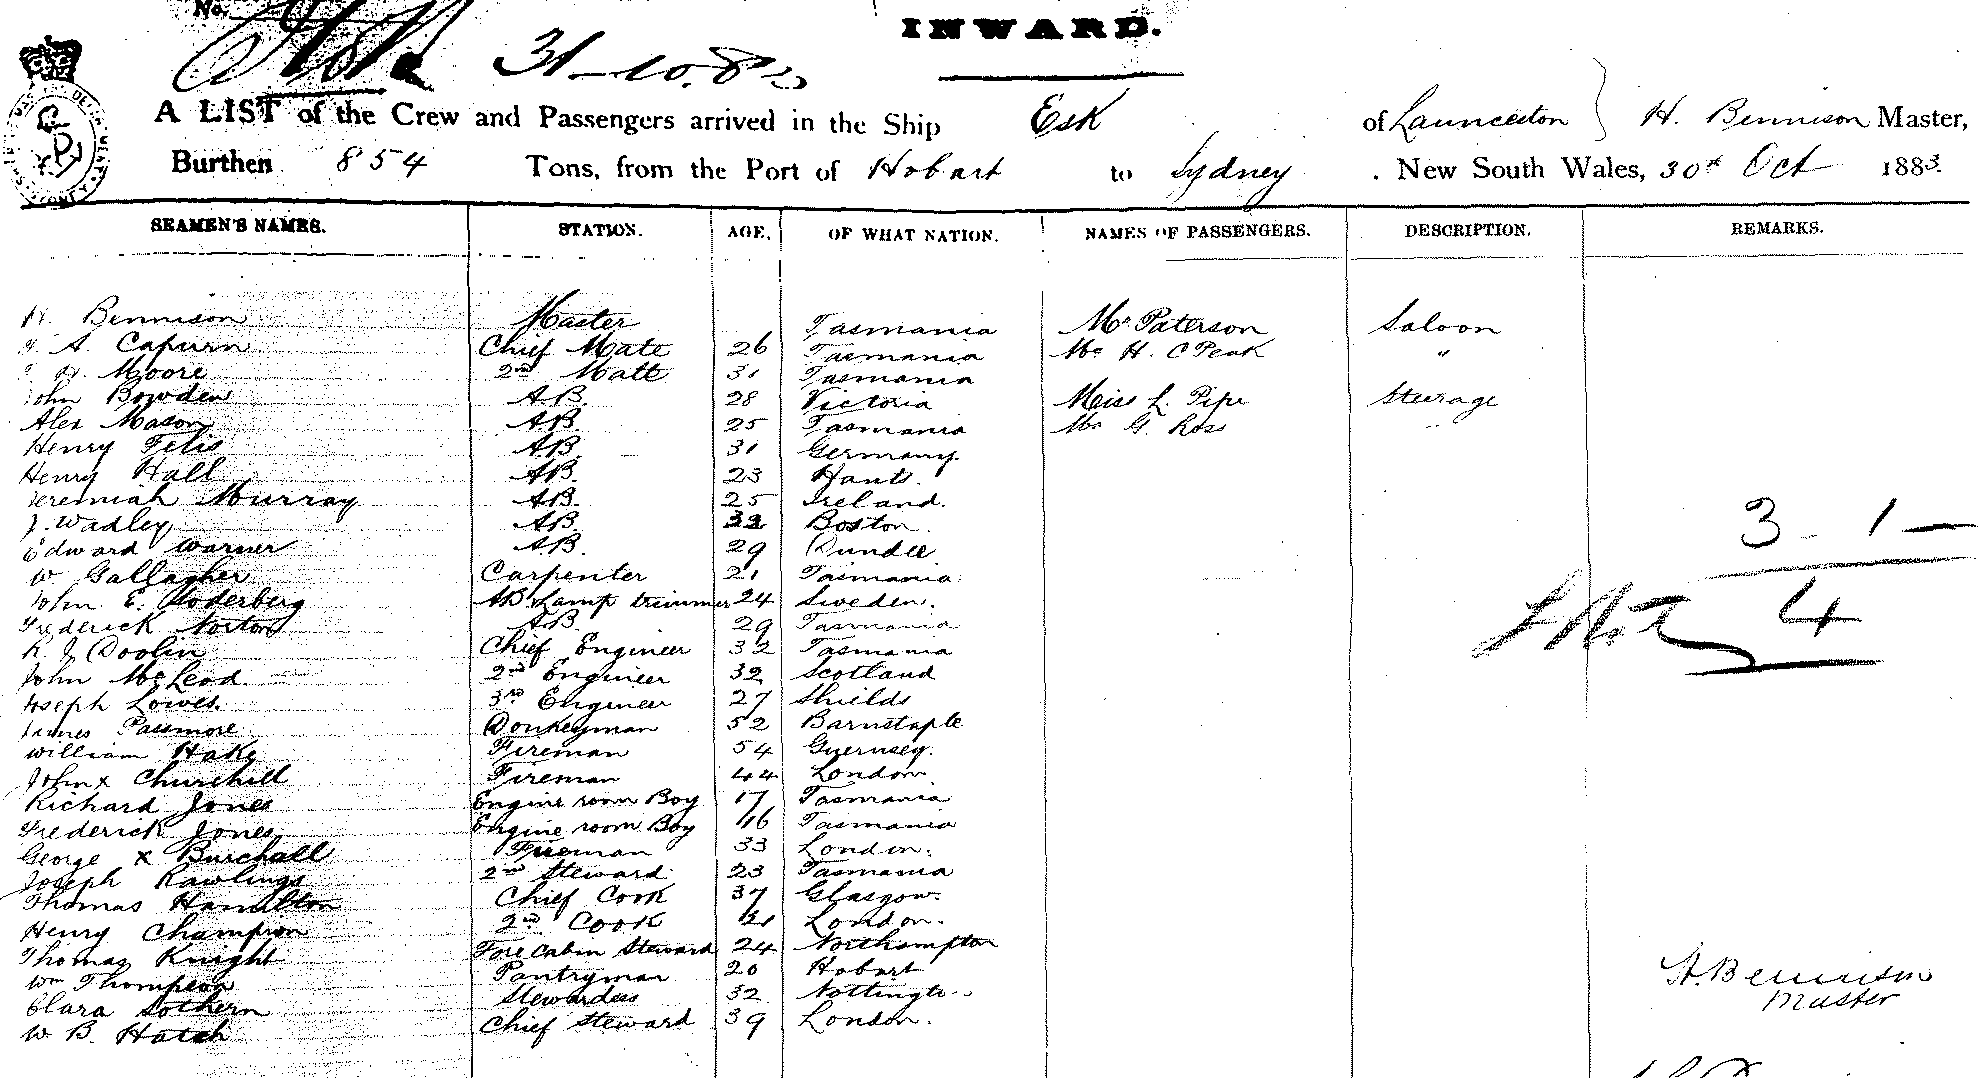 No.
INWARD.
31-10.83
A LIST of the Crew and Passengers arrived in the Ship Esk of Launceston } H. Bennison Master,
Burthen 854 Tons, from the Port of Hobart to Sydney . New South Wales, 30th Oct 1883.
SEAMEN'S NAMES. STATION. AGE. OF WHAT NATION. NAMES OF PASSENGERS. DESCRIPTION. REMARKS.
H. Bennison Master Tasmania Mr Paterson Saloon
A. Capurn Chief Mate 26 Tasmania Mr H. C Peak "
H. Moore 2nd Mate 31 Tasmania
John Bowden AB. 28 Victoria Miss L. Pipe Steerage
Alex Mason AB. 25 Tasmania Mr G. Ross "
Henry Felis AB. 31 Germany.
Henry Hall AB. 23 Hants.
Jeremiah Murray AB. 25 Ireland.
J. Wadley AB. 32 Boston.
Edward Warner AB. 29 Dundee
W. Gallagher Carpenter 21 Tasmania.
John E. Soderberg AB Lamp trimmer 24 Sweden.
Frederick Norton AB. 29 Tasmania
R. J Doolin Chief Engineer 32 Tasmania
John McLeod. 2nd Engineer 32 Scotland
Joseph Lowes. 3rd Engineer 27 Shields
James Passmore Donkeyman 52 Barnstaple
William Hake Fireman 54 Guernsey.
John x Churchill Fireman 44 London
Richard Jones Engine room Boy 17 Tasmania
Frederick Jones Engine room Boy 16 Tasmania
George x Burchall Fireman 33 London.
Joseph Rawlings 2nd Steward 23 Tasmania
Thomas Hamilton Chief Cook 37 Glasgow.
Henry Champion 2nd Cook 21 London.
Thomas Knight Fore Cabin Steward 24 Northampton
Wm Thompson Pantryman 20 Hobart
Clara Sothern Stewardess 32
W. B. Hatch Chief Steward 39 London.
3 - 1 -
4
H. Bennison
Master